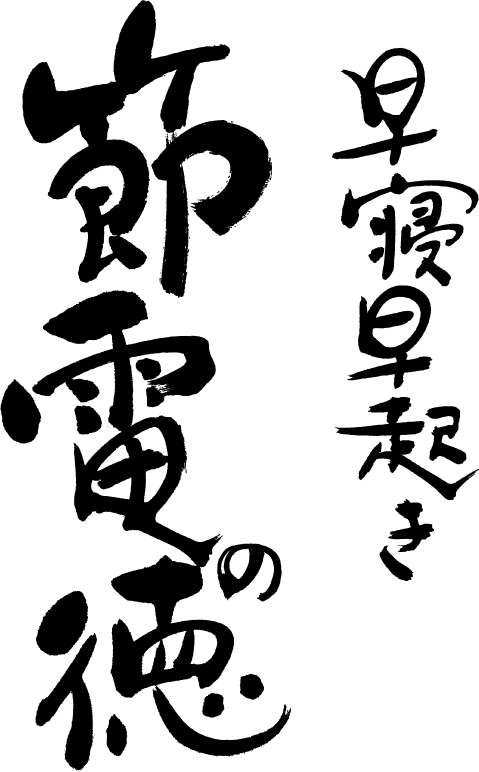 早寝早起き
節電の徳